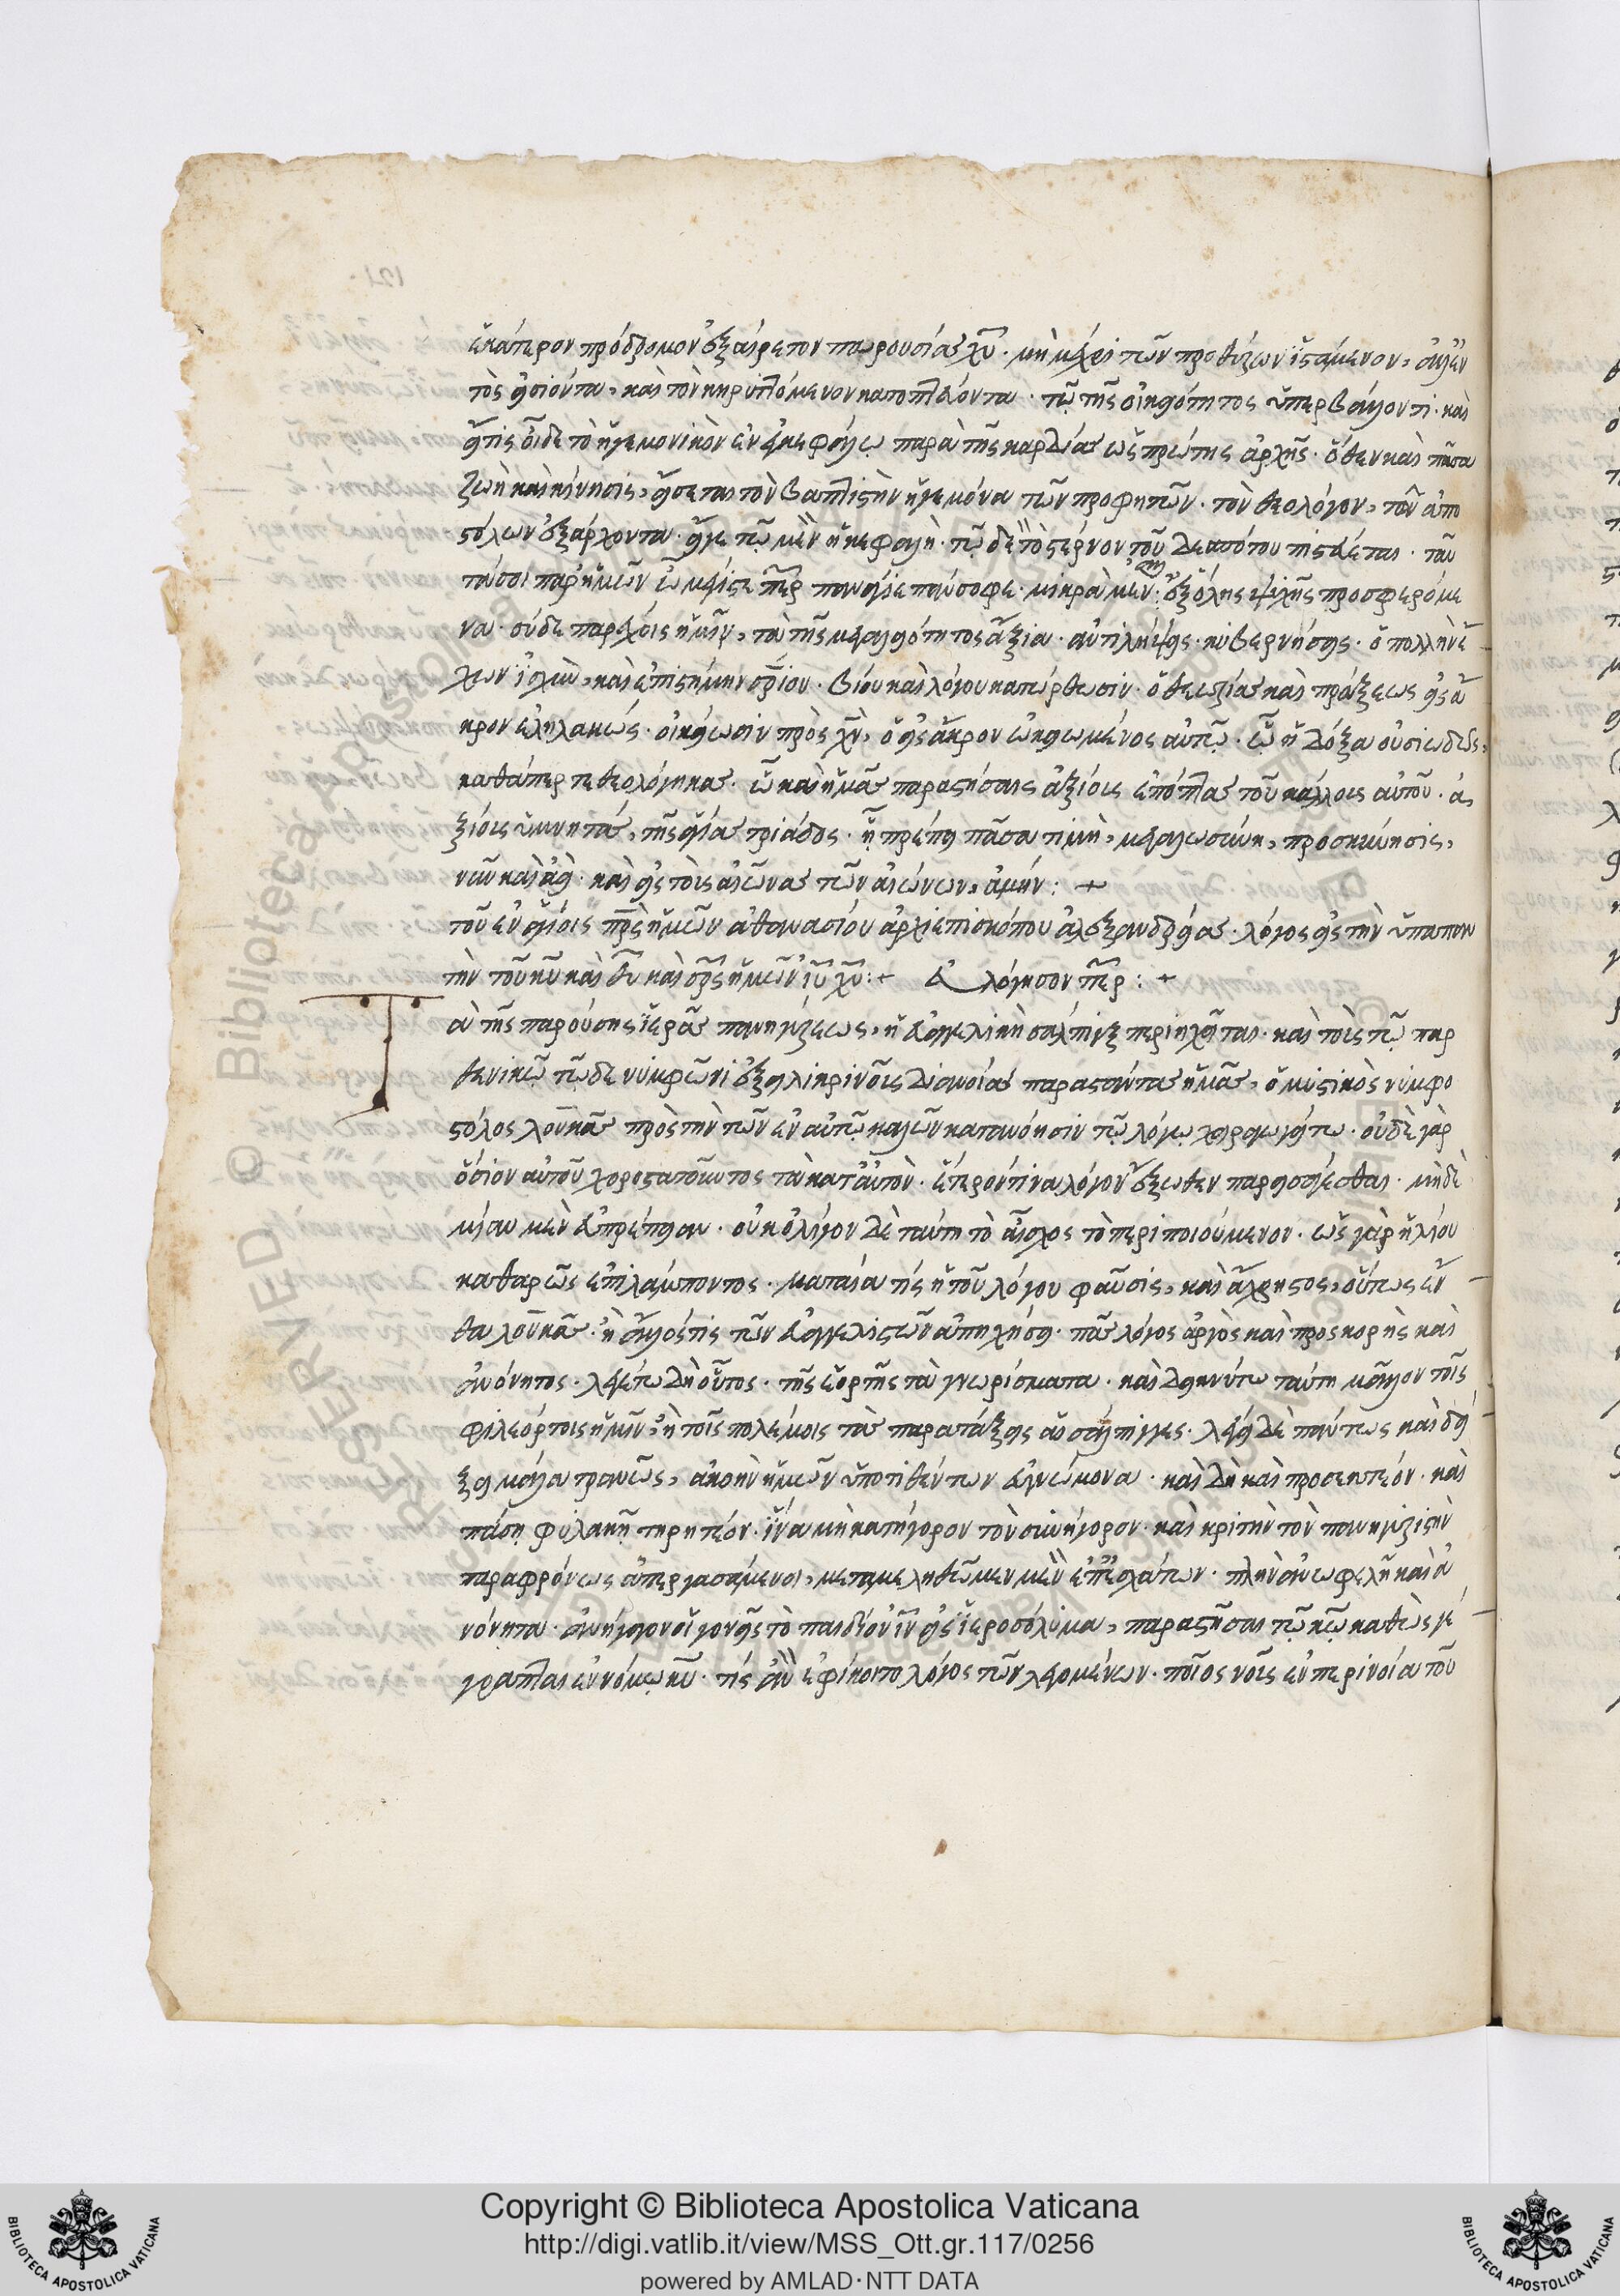 ἑκάτερον πρόδρομον ἐξαίρετον παρουσίας χυ. μὴ μέχρι τῶν προθύρων ἱστάμενον, ἀλλ' ἐν
τὸς εἰσιόντα, καὶ τὸν κηρυττόμενον κατοπτεύοντα. τῷ τῆς οἰκειότητος ὑπερβάλλοντι. καὶ
εἴ τις οἶδε τὸ ἡγεμονικὸν ἐν ἐγκεφάλῳ παρὰ τῆς καρδίας ὡς πρώτης ἀρχῆς. ὅθεν καὶ πᾶσα
ζωὴ καὶ κίνησις, εἴσεται τὸν βαπτιστὴν ἡγεμόνα τῶν προφητῶν. τὸν θεολόγον, τῶν ἀπο
στόλων ἐξάρχοντα. εἴγε τῷ μὲν ἡ κεφαλὴ. τῷ δὲ τὸ στέρνον τοῦ δεσπότου πιστεύεται. ταῦ
τά σοι παρ' ἡμῶν ὦ μέγιστε περ παναγιε πάνσοφε. μικρὰ μὲν. ἐξ ὅλης ψυχῆς προσφερόμε
να. σὺ δὲ παρέχοις ἡμῖν, τὰ τῆς μεγαλειότητος ἄξια. ἀντιλήψεις. κυβερνήσεις. ὁ πολλὴν ἔ
χων ἰσχὺν, καὶ ἐπιστήμην σρίου. βίου καὶ λόγου κατόρθωσιν. ὁ θεωρίας καὶ πράξεως εἰς ἄ
κρον ἐληλακώς. οἰκείωσιν πρὸς χν, ὁ εἰς ἄκρον ᾠκειωμένος αὐτῷ. ᾧ ἡ δόξα οὐσιωδῶς,
καθάπερ τεθεολόγηκας. ᾧ καὶ ἡμᾶς παραστήσαις ἀξίους ἐπόπτας τοῦ κάλλους αὐτοῦ. ἀ
ξίους ὑμνητὰς, τῆς ἁγίας τριάδος. ᾗ πρέπει πᾶσα τιμὴ, μεγαλωσύνη, προσκύνησις,
νῦν καὶ ἀεὶ. καὶ εἰς τοὺς αἰῶνας τῶν αἰώνων, ἀμήν: +
τοῦ ἐν ἁγίοις πρς ἡμῶν ἀθανασίου ἀρχιεπισκόπου ἀλεξανδρείας. λόγος εἰς τὴν ὑπαπαν
τὴν τοῦ κυ καὶ θυ καὶ σρς ἡμῶν ιυ χυ: + εὐλόγησον περ: +
Τὰ τῆς παρούσης ἱερᾶς πανηγύρεως, ἡ εὐαγγελικὴ σάλπιγξ περιηχεῖται. καὶ τοὺς τῷ παρ
θενικῷ τῷδε νυμφῶνι ἐξ εἰλικρινοῦς διανοίας παραστάντας ἡμᾶς, ὁ μυστικὸς νυμφο
στόλος λουκᾶς πρὸς τὴν τῶν ἐν αὐτῷ καλῶν κατανόησιν τῷ λόγῳ χειραγωγείτω. οὐδὲ γὰρ
ὅσιον αὐτοῦ χοροστατοῦντος τὰ κατ' αὐτὸν. ἕτερόν τινα λόγον ἔξωθεν παρεισάγεσθαι. μηδε
μίαν μὲν εὐπρέπειαν. οὐκ ὀλίγον δὲ ταύτῃ τὸ αἶσχος τὸ περιποιούμενον. ὡς γὰρ ἡλίου
καθαρῶς ἐπιλάμποντος. ματαία τίς ἡ τοῦ λόγου φαῦσις, καὶ ἄχρηστος, οὕτως ἔν
θα λουκᾶς. ἢ ἄλλός τις τῶν εὐαγγελιστῶν ἀπηχήσει. πᾶς λόγος ἀργὸς καὶ προσκορὴς καὶ
ἀνόνητος. λεγέτω δὴ οὗτος. τῆς ἑορτῆς τὰ γνωρίσματα. καὶ δεικνύτω ταύτῃ μᾶλλον τοῖς
φιλεόρτοις ἡμῖν, ἢ τοῖς πολέμοις τὰς παρατάξεις αἱ σάλπιγγες. λέγει δὲ πάντως καὶ δεί
ξει μάλα τρανῶς, ἀκοὴν ἡμῶν ὑποτιθέντων εὐγνώμονα. καὶ δὴ καὶ προσεκτέον. καὶ
πάσῃ φυλακῇ τηρητέον. ἵνα μὴ κατήγορον τὸν συνήγορον. καὶ κριτὴν τὸν πανηγυριστὴν
παραφρόνως ἀπεργασάμενοι, μεταμεληθῶμεν μὲν ἐπ' ἐσχάτων. πλὴν ἀνωφελῆ καὶ ἀ
νόνητα. ἀνήγαγον οἱ γονεῖς τὸ παιδίον ιν εἰς ἱεροσόλυμα, παραστῆσαι τῷ κω καθὼς γέ
γραπται ἐν νόμῳ κυ. τίς ἂν ἐφίκοιτο λόγος τῶν λεγομένων. ποῖος νοῦς ἐν περινοίᾳ τοῦ
Copyright © Biblioteca Apostolica Vaticana
http://digi.vatlib.it/view/MSS_Ott.gr.117/0256
powered by AMLAD·NTT DATA